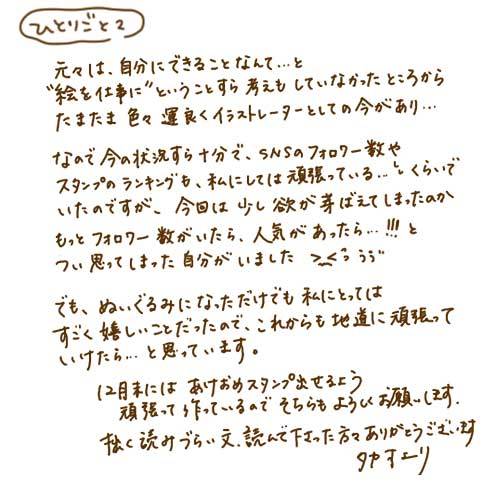 ひとりごと2
元々は、自分にできることなんて…と
"絵を仕事に"ということすら考えもしていなかったところから
たまたま色々運良くイラストレーターとしての今があり…
なので今の状況すら十分で、SNSのフォロワー数や
スタンプのランキングも、私にしては頑張っている…！くらいで
いたのですが、今回は少し欲が芽ばえてしまったのか
もっとフォロワー数がいたら、人気があったら…!!!と
つい思ってしまった自分がいました >_<゛ううﾞ
でも、ぬいぐるみになっただけでも私にとっては
すごく嬉しいことだったので、これからも地道に頑張って
いけたら…と思っています。
12月末にはあけおめスタンプ出せるよう
頑張って作っているのでそちらもよろしくお願いします.
拙く読みづらい文、読んで下さった方々ありがとうございます
タカオエリ